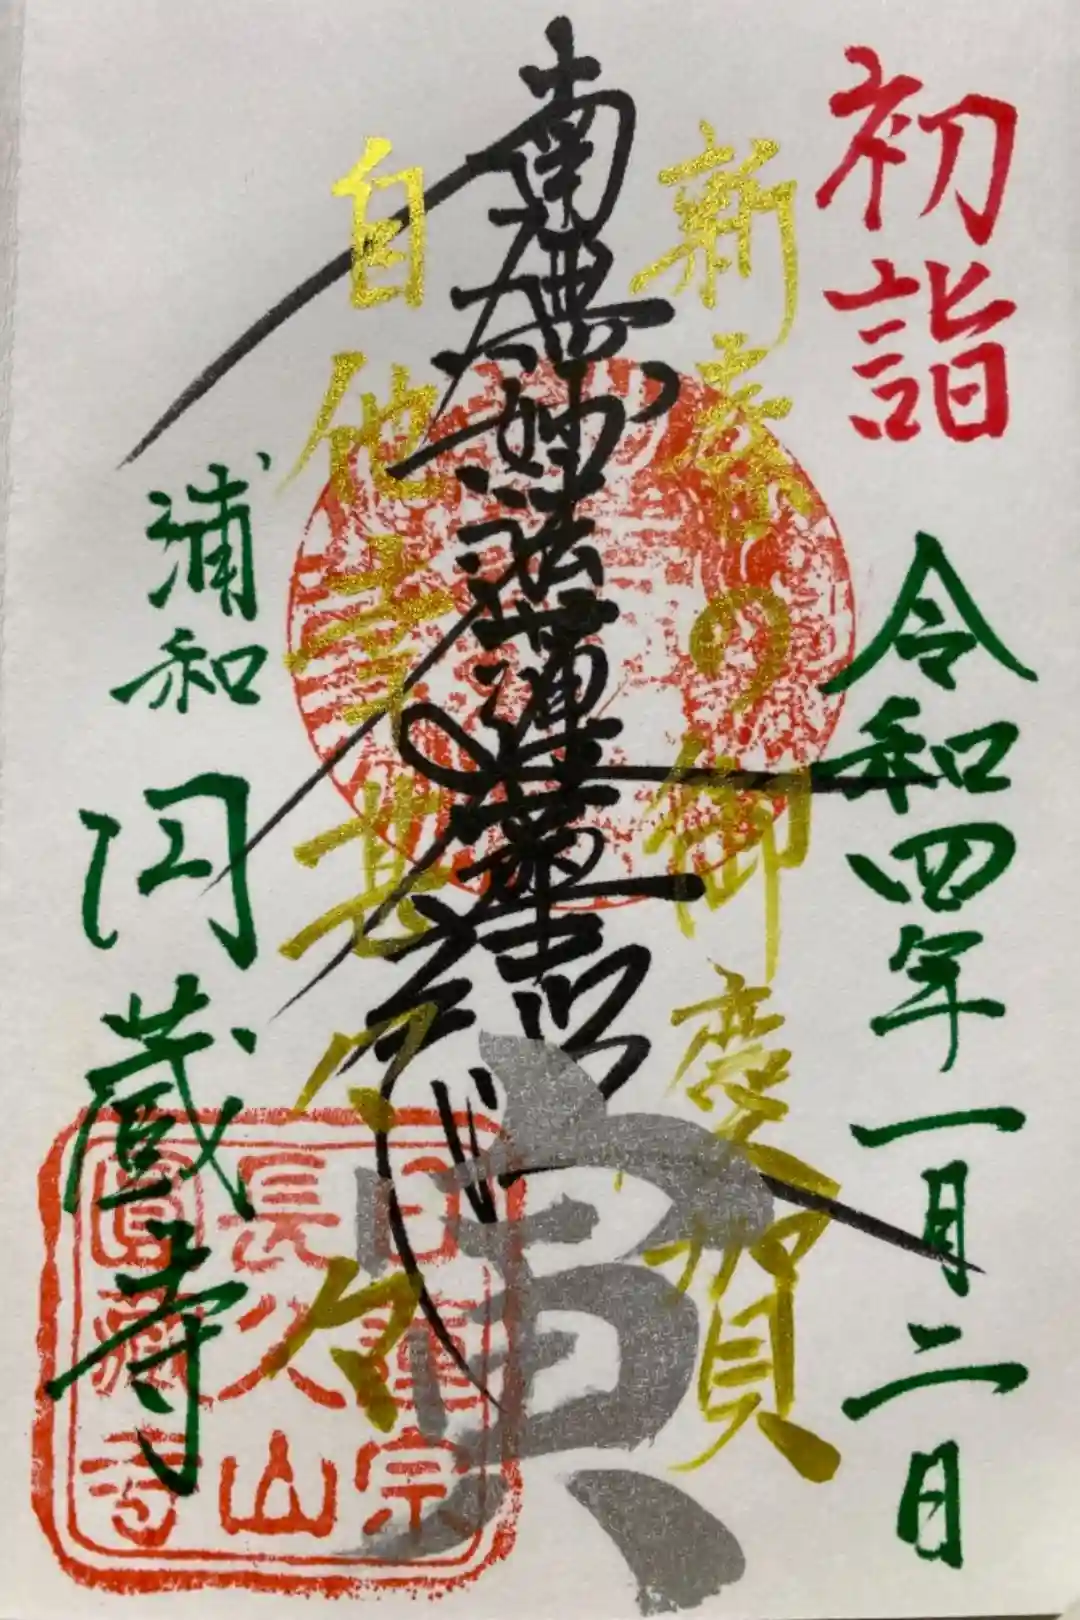 初詣
令和四年一月二日
新春の御慶賀
南無妙法蓮華経
自他幸甚々々
寅
浦和
円蔵寺
日蓮宗
長久山
圓蔵寺